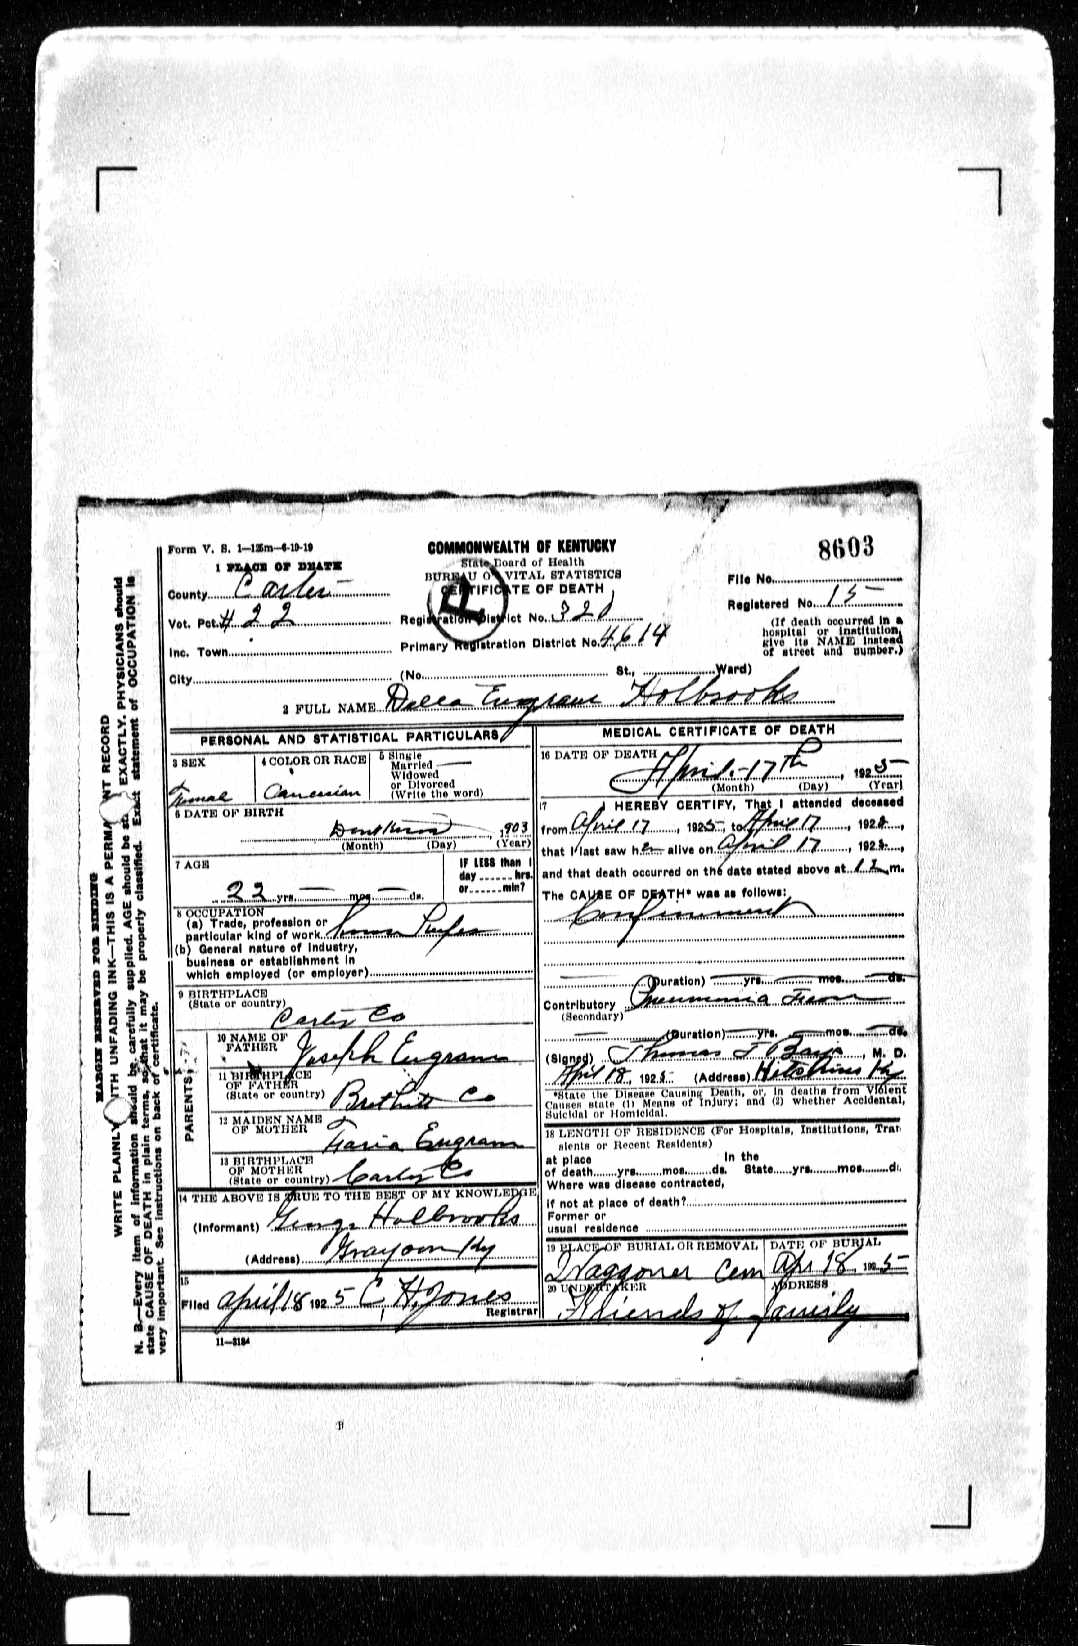 Form V. S. 1—125m—6-19-19
COMMONWEALTH OF KENTUCKY
State Board of Health
BUREAU OF VITAL STATISTICS
CERTIFICATE OF DEATH
8603
1 PLACE OF DEATH
County Carter
Vot. Pct. # 22
Inc. Town
City
Registration District No. 320
Primary Registration District No. 4614
File No.
Registered No. 15
(If death occurred in a
hospital or institution,
give its NAME instead
of street and number.)
(No. St., Ward)
2 FULL NAME Della Engram Holbrooks
PERSONAL AND STATISTICAL PARTICULARS
3 SEX
Female
4 COLOR OR RACE
Caucasian
5 Single
Married
Widowed
or Divorced
(Write the word)
6 DATE OF BIRTH
Dont Know, 1903
(Month) (Day) (Year)
7 AGE
22 yrs. mos. ds.
IF LESS than 1
day hrs.
or min?
8 OCCUPATION
(a) Trade, profession or
particular kind of work
(b) General nature of industry,
business or establishment in
which employed (or employer)
9 BIRTHPLACE
(State or country)
Carter Co
PARENTS
10 NAME OF
FATHER Joseph Engram
11 BIRTHPLACE
OF FATHER
(State or country) Brethitt Co
12 MAIDEN NAME
OF MOTHER
Engram
13 BIRTHPLACE
OF MOTHER
(State or country) Carter Co
14 THE ABOVE IS TRUE TO THE BEST OF MY KNOWLEDGE
(Informant) George Holbrooks
(Address) Grayson Ky
15
Filed April 18 1925 C. H. Jones
Registrar
11—3184
MEDICAL CERTIFICATE OF DEATH
16 DATE OF DEATH April 17th, 1925
(Month) (Day) (Year)
17 I HEREBY CERTIFY, That I attended deceased
from April 17, 1925, to April 17, 1925,
that I last saw her alive on April 17, 1925,
and that death occurred on the date stated above at 12 m.
The CAUSE OF DEATH* was as follows:
Confinement
(Duration) yrs. mos. ds.
Contributory Pneumonia
(Secondary)
(Duration) yrs. mos. ds.
(Signed) Thomas, M. D.
April 18, 1925 (Address) Hitchins Ky
*State the Disease Causing Death, or, in deaths from Violent
Causes state (1) Means of Injury; and (2) whether Accidental,
Suicidal or Homicidal.
18 LENGTH OF RESIDENCE (For Hospitals, Institutions, Tran
sients or Recent Residents)
at place In the
of death yrs. mos. ds. State yrs. mos. d
Where was disease contracted,
if not at place of death?
Former or
usual residence
19 PLACE OF BURIAL OR REMOVAL
Waggoner Cem
DATE OF BURIAL
Apr 18 1925
20 UNDERTAKER
ADDRESS
Friends of family
MARGIN RESERVED FOR BINDING
WRITE PLAINLY WITH UNFADING INK—THIS IS A PERMANENT RECORD
N. B.—Every item of information should be carefully supplied. AGE should be stated EXACTLY. PHYSICIANS should
state CAUSE OF DEATH in plain terms, so that it may be properly classified. Exact statement of OCCUPATION is
very important. See instructions on back of certificate.